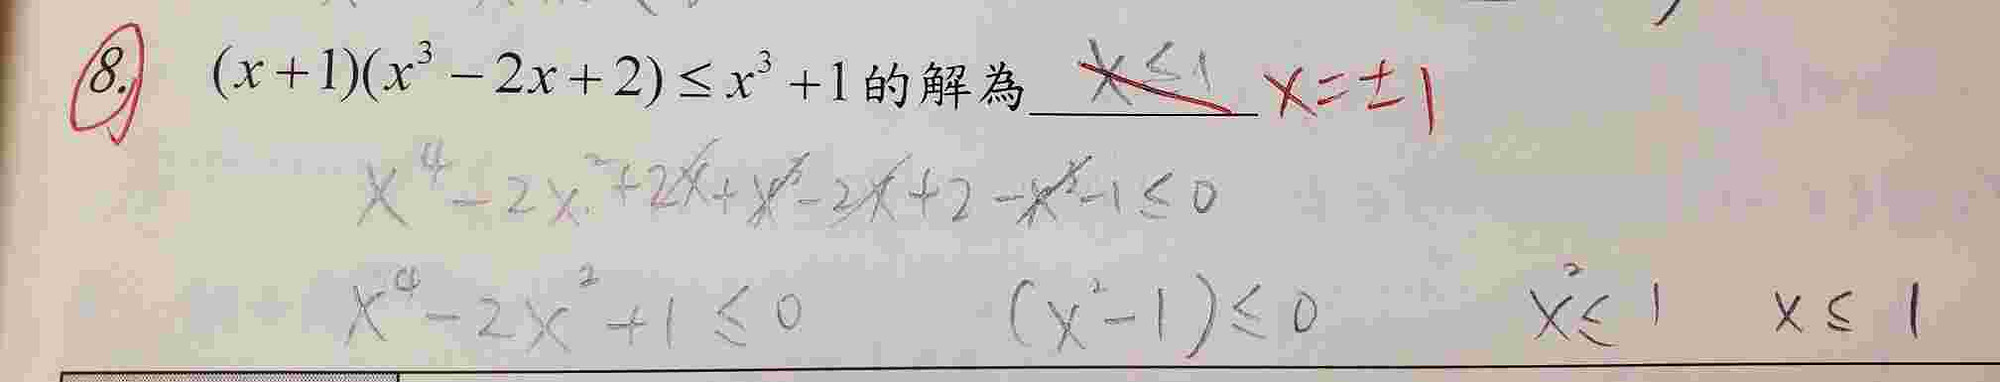 8. (x+1)(x³-2x+2)≤x³+1的解為 x≤1 x=±1
x⁴-2x²+2x+x³-2x+2-x³-1≤0
x⁴-2x²+1≤0 (x²-1)≤0 x²≤1 x≤1